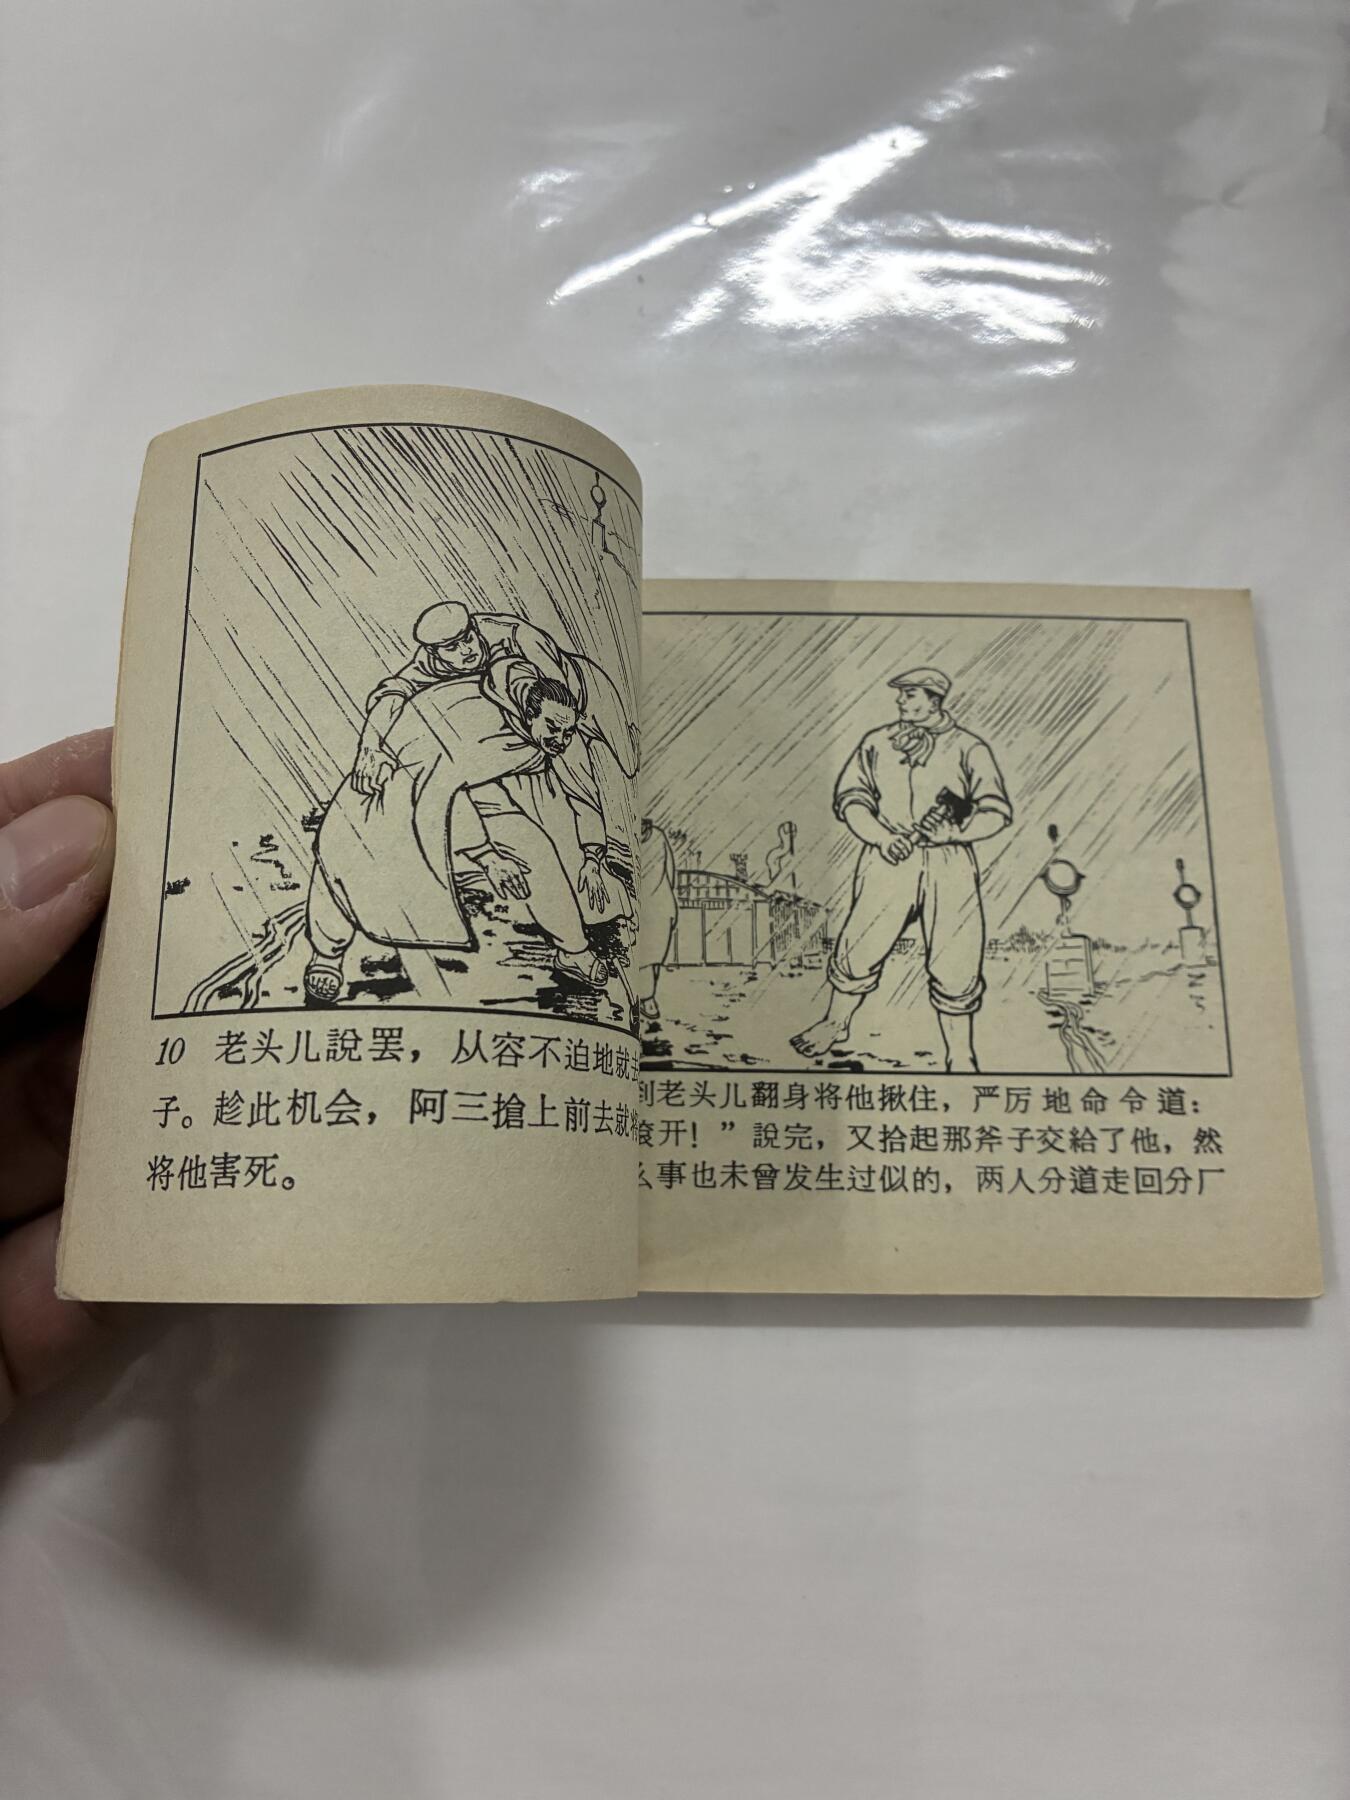 10 老头儿說罢，从容不迫地就去
子。趁此机会，阿三搶上前去就将
将他害死。
到老头儿翻身将他揪住，严厉地命令道：
滚开！”說完，又拾起那斧子交給了他，然
么事也未曾发生过似的，两人分道走回分厂